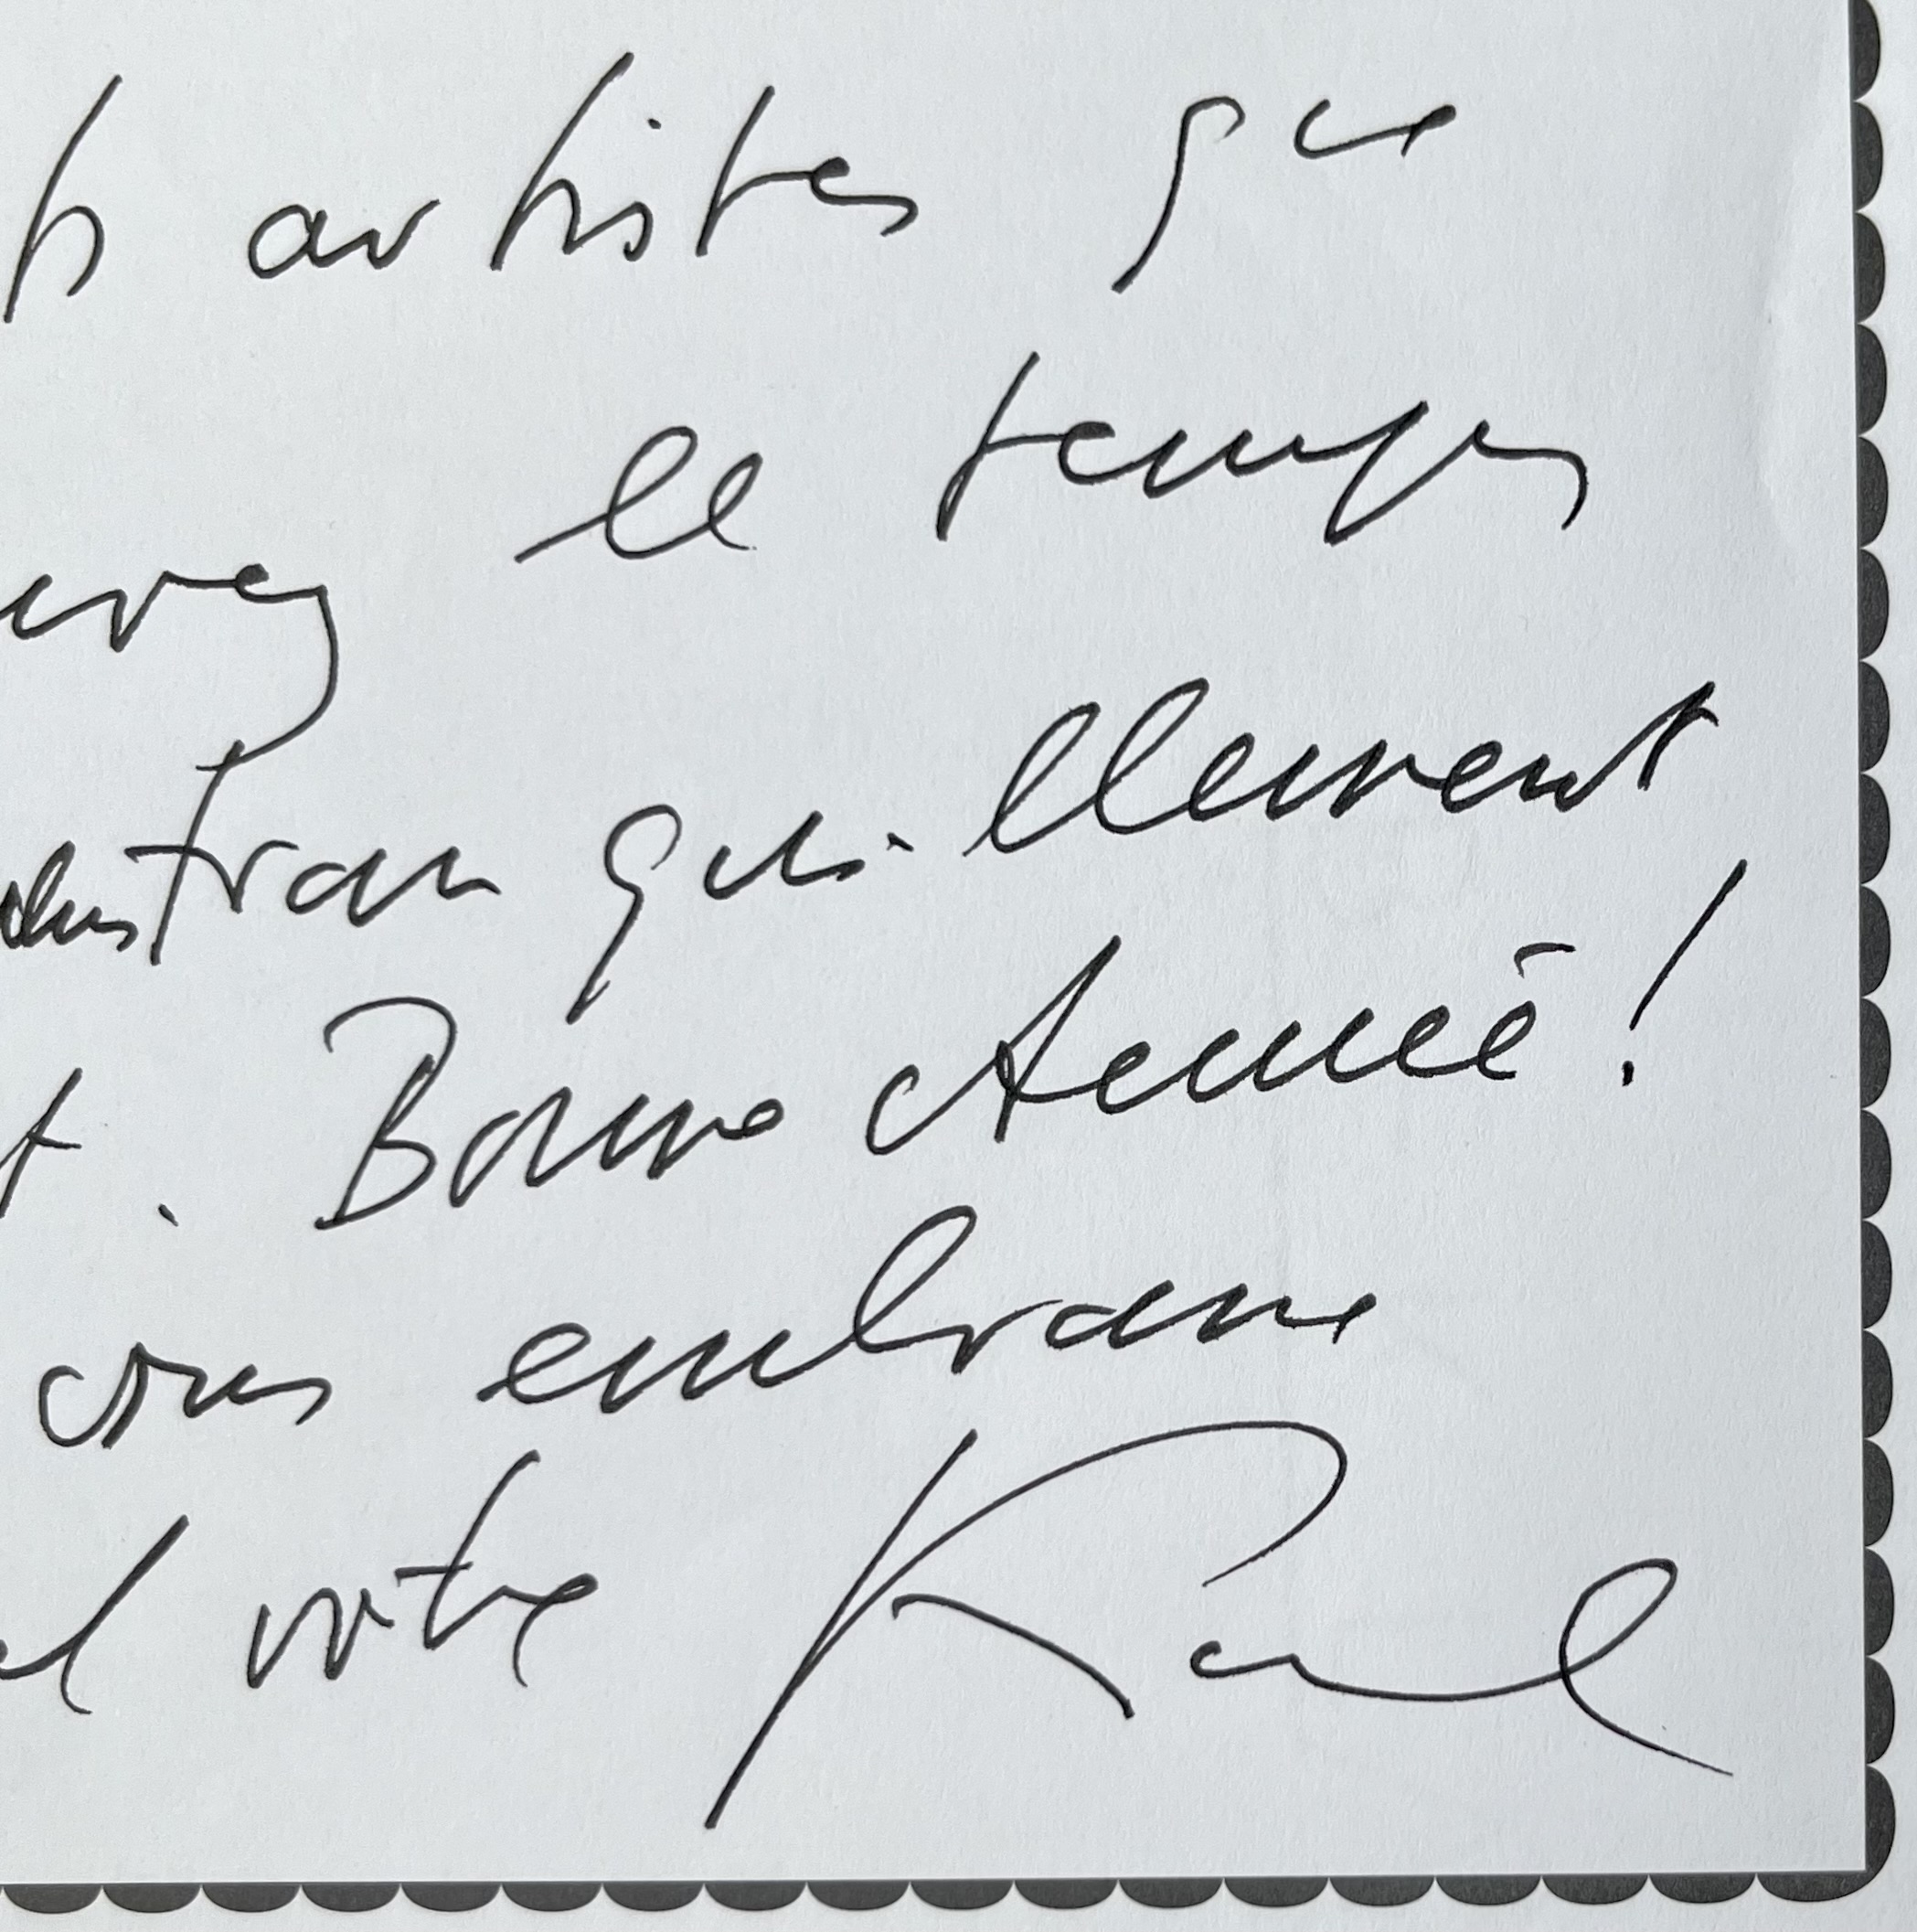 ts artistes que
uvez le temps
plus tranquillement
t. Bonne Année !
vous embrasse
el vôtre Karl